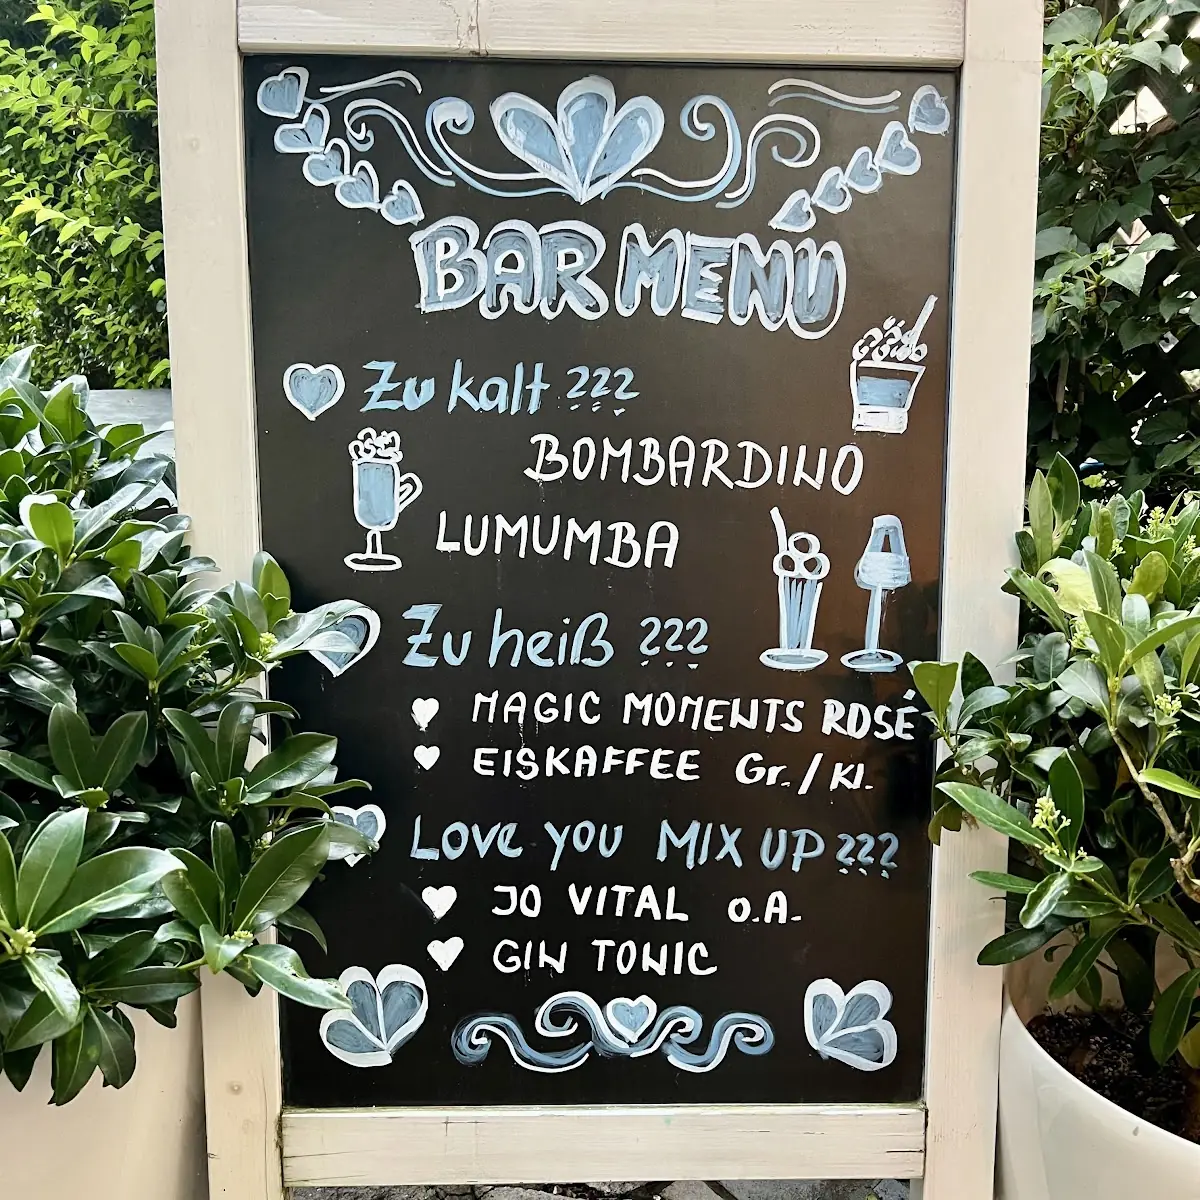 BAR MENÚ
Zu kalt ???
BOMBARDINO
LUMUMBA
Zu heiß ???
MAGIC MOMENTS ROSÉ
EISKAFFEE Gr./Kl.
LOVE YOU MIX UP ???
JO VITAL O.A.
GIN TONIC